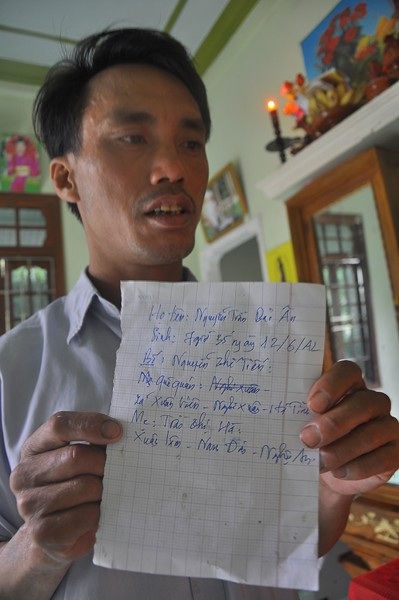 Họ tên: Nguyễn Trần Đức Ân
Sinh: 7 giờ 35 ngày 12/6/AL
Bố: Nguyễn Thế Tiến:
Mẹ quê quán: Nghi Xuân
Xã Xuân Viên - Nghi Xuân - Hà Tĩnh
Mẹ: Trần Thị Hà:
Xuân Lâm - Nam Đàn - Nghệ An